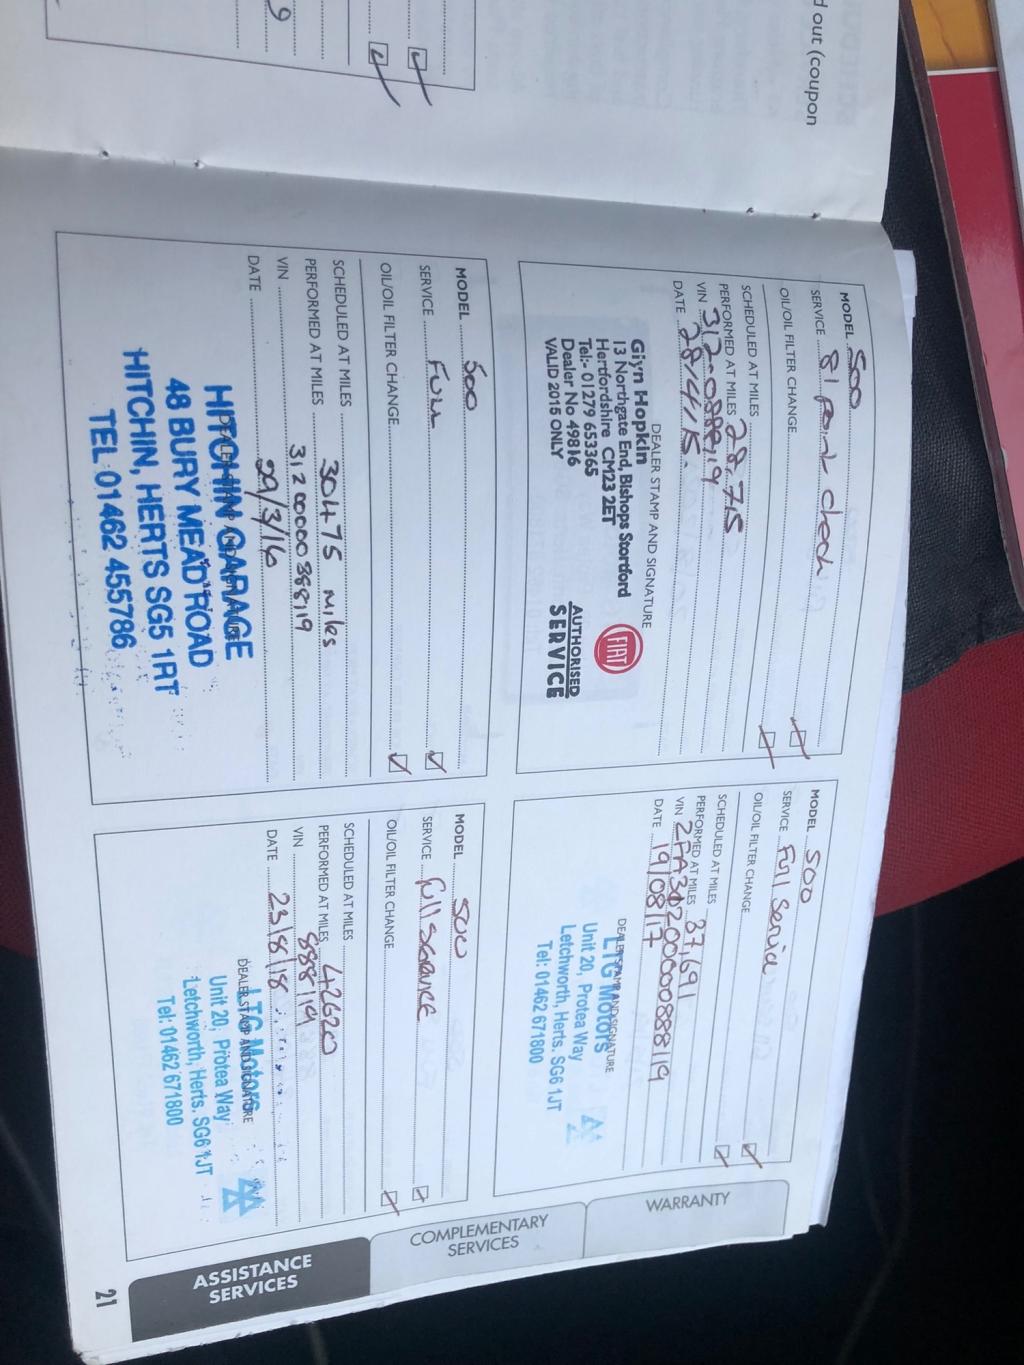 d out (coupon
9
MODEL 500
SERVICE 81 point check
OIL/OIL FILTER CHANGE
SCHEDULED AT MILES
PERFORMED AT MILES 28,715
VIN 312-0888,19
DATE 28/4/15.
DEALER STAMP AND SIGNATURE
Glyn Hopkin
13 Northgate End, Bishops Stortford
Hertfordshire CM23 2ET
Tel:- 01279 653365
Dealer No 49816
VALID 2015 ONLY
FIAT
AUTHORISED
SERVICE
MODEL 500
SERVICE Full Service
OIL/OIL FILTER CHANGE
SCHEDULED AT MILES
PERFORMED AT MILES 37,691
VIN 2FA31200000888119
DATE 19/08/17
DEALER STAMP AND SIGNATURE
LTG Motors
Unit 20, Protea Way
Letchworth, Herts. SG6 1JT
Tel: 01462 671800
MODEL 500
SERVICE Full
OIL/OIL FILTER CHANGE
SCHEDULED AT MILES
PERFORMED AT MILES 30475 miles
VIN 3120000088819
DATE 29/3/16
DEALER STAMP AND SIGNATURE
HITCHIN GARAGE
48 BURY MEAD ROAD
HITCHIN, HERTS SG5 1RT
TEL 01462 455786
MODEL 500
SERVICE full service
OIL/OIL FILTER CHANGE
SCHEDULED AT MILES
PERFORMED AT MILES 42620
VIN 888119
DATE 23/8/18
DEALER STAMP AND SIGNATURE
LTG Motors
Unit 20, Protea Way
Letchworth, Herts. SG6 1JT
Tel: 01462 671800
WARRANTY
COMPLEMENTARY
SERVICES
ASSISTANCE
SERVICES
21